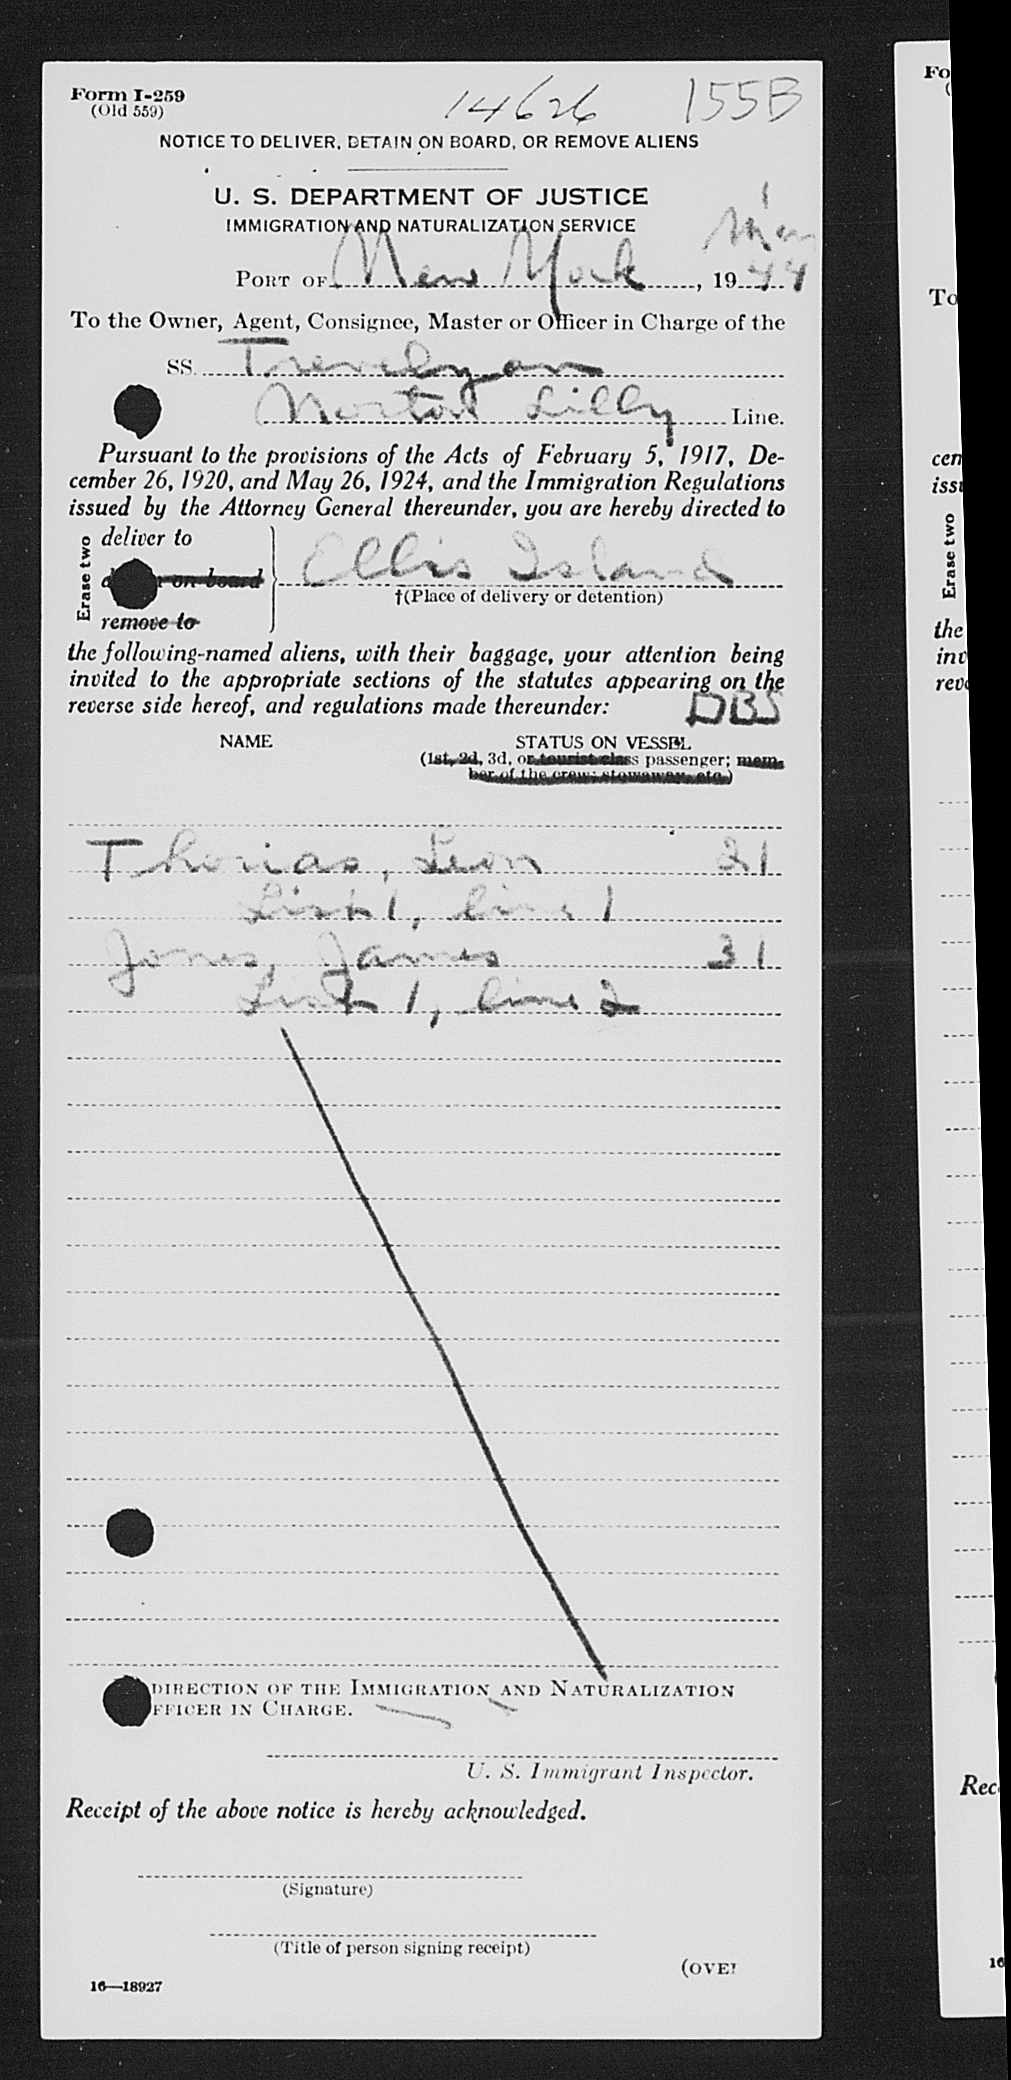 Form I-259
(Old 559)
14626 155B
NOTICE TO DELIVER, DETAIN ON BOARD, OR REMOVE ALIENS
U. S. DEPARTMENT OF JUSTICE
IMMIGRATION AND NATURALIZATION SERVICE
PORT OF New York, 1944
To the Owner, Agent, Consignee, Master or Officer in Charge of the
SS. Trevelyan
Norton Lilly Line.
Pursuant to the provisions of the Acts of February 5, 1917, De-
cember 26, 1920, and May 26, 1924, and the Immigration Regulations
issued by the Attorney General thereunder, you are hereby directed to
Erase two
deliver to
on board
remove to
Ellis Island
†(Place of delivery or detention)
the following-named aliens, with their baggage, your attention being
invited to the appropriate sections of the statutes appearing on the
reverse side hereof, and regulations made thereunder: DBS
NAME STATUS ON VESSEL
(1st, 2d, 3d, or tourist class passenger; mem-
ber of the crew; stowaway, etc.)
Thomas, Leon 21
List 1, line 1
Jones, James 31
List 1, line 2
DIRECTION OF THE IMMIGRATION AND NATURALIZATION
FFICER IN CHARGE.
U. S. Immigrant Inspector.
Receipt of the above notice is hereby acknowledged.
(Signature)
(Title of person signing receipt)
(OVER
16—18927
Fo
(
To
cen
issu
Erase two
the
inv
reve
Rec
16